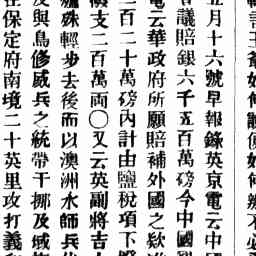 王爺如何調度如何辨不必
五月十六號早報錄英京電云中國
會議賠銀六千五百萬磅今中國
電云華政府所願賠補外國之欵
二百二十萬磅內計由鹽稅項下
支二百萬兩〇又云英副將吉
殊輕步去後而以澳洲水師兵
及與鳥修威兵之統帶干挪及域
在保定府南境二十英里攻打義和